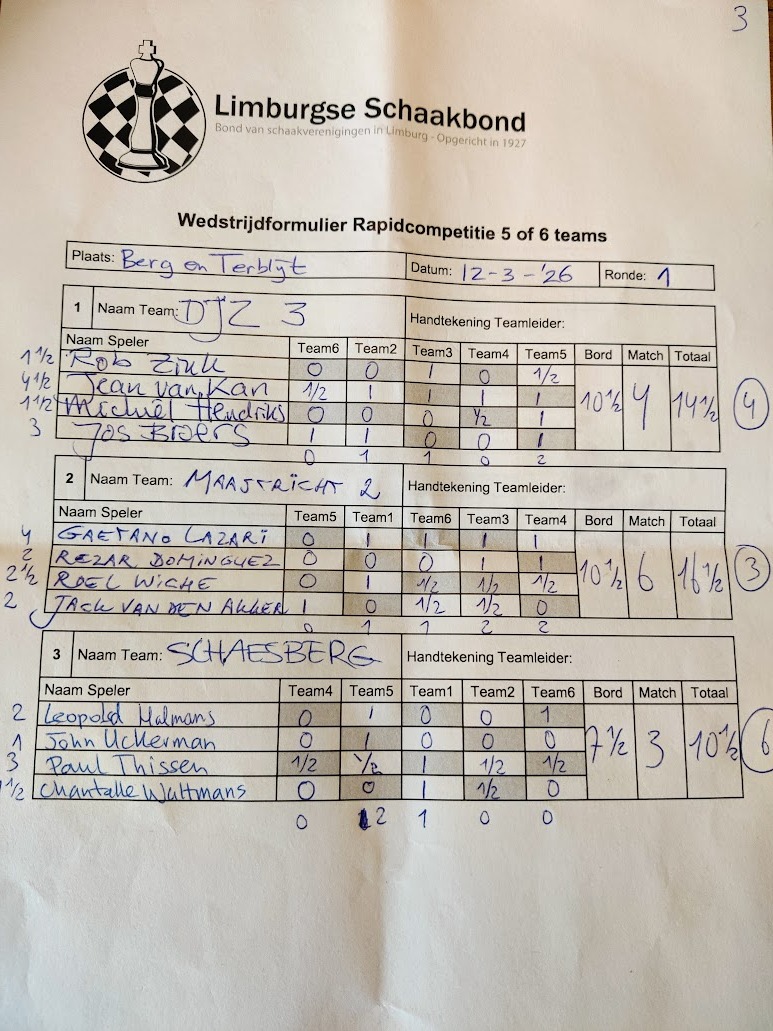 3
Limburgse Schaakbond
Bond van schaakverenigingen in Limburg - Opgericht in 1927
Wedstrijdformulier Rapidcompetitie 5 of 6 teams
Plaats: Berg en Terblijt Datum: 12-3-'26 Ronde: 1
1 Naam Team: DJZ 3 Handtekening Teamleider:
Naam Speler Team6 Team2 Team3 Team4 Team5 Bord Match Totaal
1 1/2 Rob Zink 0 0 1 0 1/2
4 1/2 Jean van Kan 1/2 1 1 1 1 10 1/2 4 14 1/2 4
1 1/2 Michiel Hendriks 0 0 0 1/2 1
3 Jos Broers 1 1 0 0 1
0 1 1 0 2
2 Naam Team: MAASTRICHT 2 Handtekening Teamleider:
Naam Speler Team5 Team1 Team6 Team3 Team4 Bord Match Totaal
4 GAETANO LAZARI 0 1 1 1 1
2 REZAR DOMINGUEZ 0 0 0 1 1 10 1/2 6 16 1/2 3
2 1/2 ROEL WICHE 0 1 1/2 1/2 1/2
2 JACK VAN DEN AKKER 1 0 1/2 1/2 0
0 1 1 2 2
3 Naam Team: SCHAESBERG Handtekening Teamleider:
Naam Speler Team4 Team5 Team1 Team2 Team6 Bord Match Totaal
2 Leopold Halmans 0 1 0 0 1
1 John Uckerman 0 1 0 0 0 7 1/2 3 10 1/2 6
3 Paul Thissen 1/2 1/2 1 1/2 1/2
1/2 Chantalle Waltmans 0 0 1 1/2 0
0 2 1 0 0